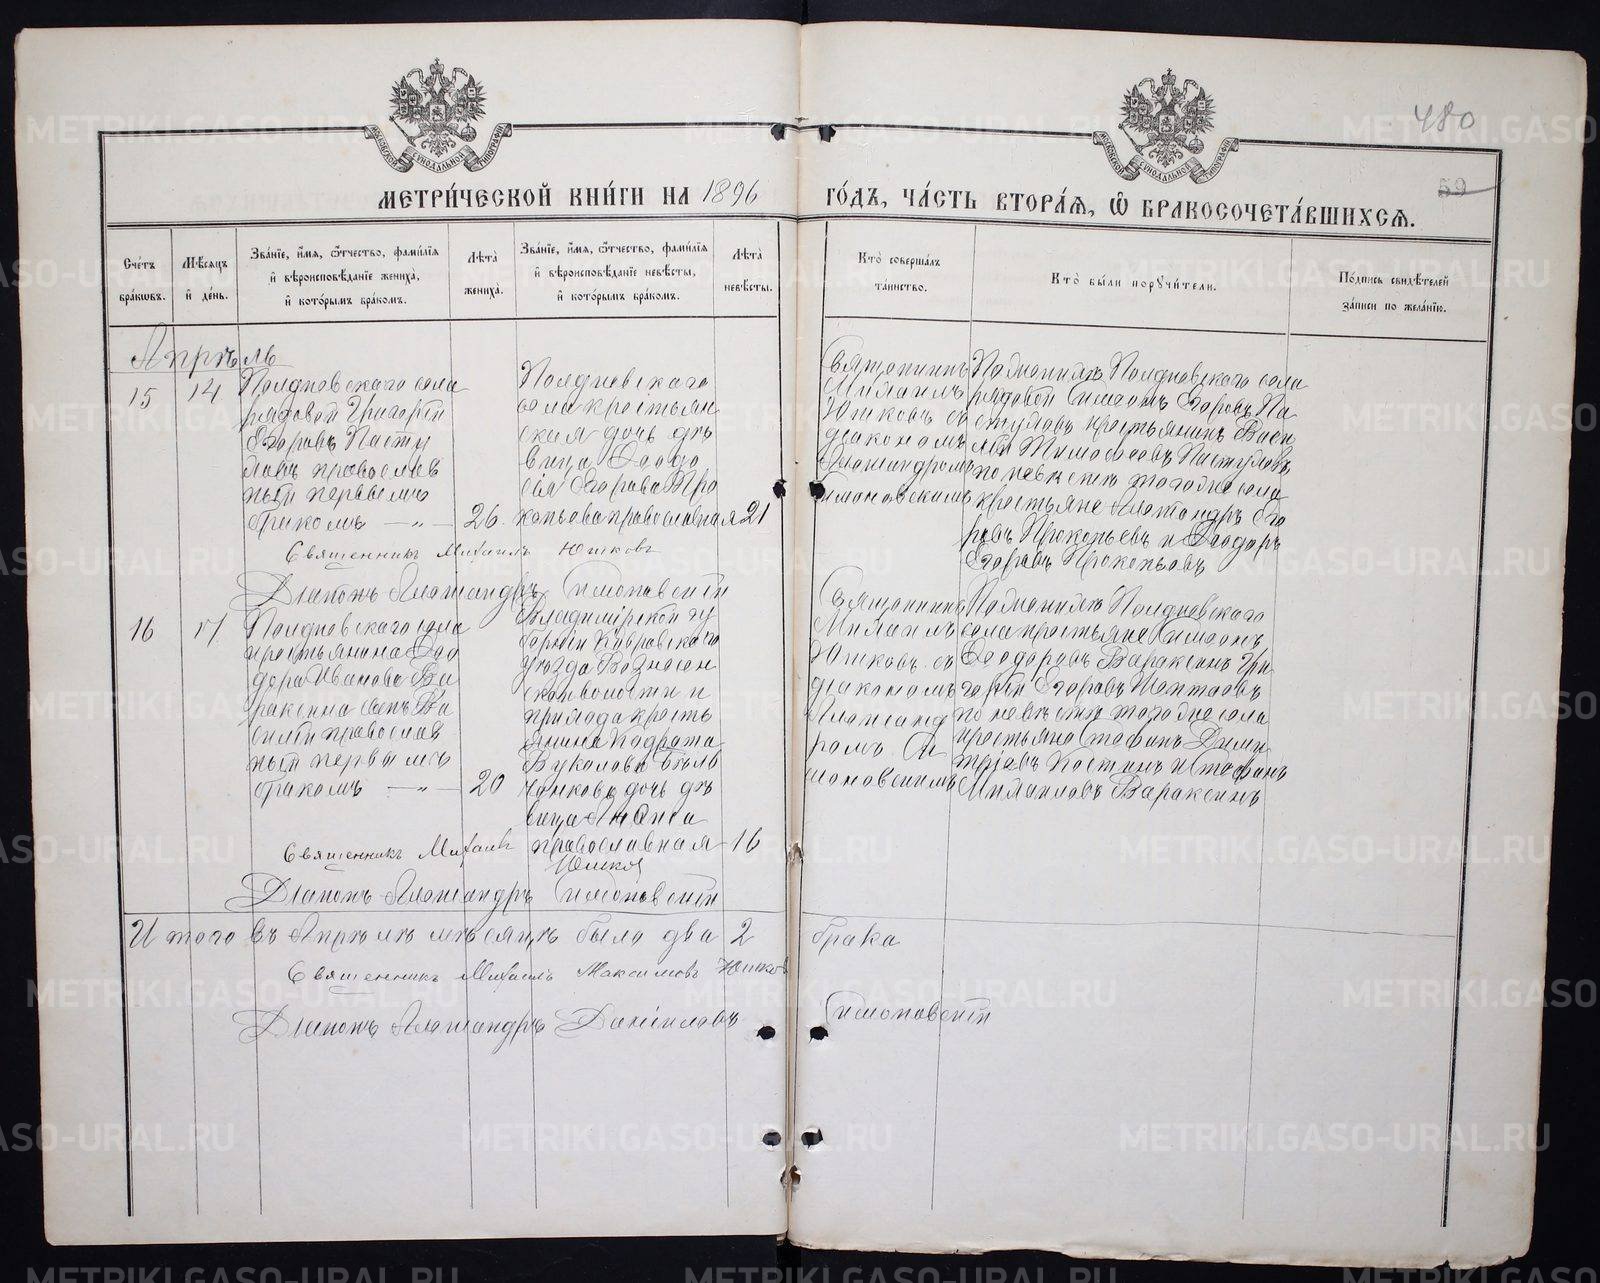 480
МОСКОВСКОЙ СѴНОДАЛЬНОЙ ТИПОГРАФІИ
МОСКОВСКОЙ СѴНОДАЛЬНОЙ ТИПОГРАФІИ
МЕТРИ́ЧЕСКОЙ КНИ́ГИ НА 1896
ГО́ДЪ, ЧА́СТЬ ВТОРА́Ѧ, Ѿ БРАКОСОЧЕТА́ВШИХСѦ.
59
Сче́тъ бра́кѡвъ.
Мѣ́сѧцъ и҆ де́нь.
Зва́нїе, и҆́мѧ, ѻ҆́тчество, фами́лїѧ
и҆ вѣроисповѣ́данїе жениха̀,
и҆ кото́рымъ бра́комъ.
Лѣ́та жениха̀.
Зва́нїе, и҆́мѧ, ѻ҆́тчество, фами́лїѧ
и҆ вѣроисповѣ́данїе невѣ́сты,
и҆ кото́рымъ бра́комъ.
Лѣ́та невѣ́сты.
Кто̀ соверша́лъ
та́инство.
Кто̀ бы́ли порꙋчи́тели.
По́дпись свидѣ́телей
за́писи по жела́нїю.
Апрѣль
15
14
Полдневскаго села
рядовой Григорій
Егоровъ Пасту
ловъ православ
ный первымъ
бракомъ — „ —
26.
Полдневскаго
села крестьян
ская дочь дѣ
вица Ѳеодо
сія Егорова Про
копьева православная
21
Священникъ
Михаилъ
Юшковъ съ
діакономъ
Александромъ
Симоновскимъ
По женихѣ Полдневскаго села
рядовой Симеонъ Егоровъ Па
стуловъ крестьянинъ Васи
лій Тимофеевъ Пастуловъ
по невѣстѣ того же села
крестьяне Александръ Его
ровъ Прокопьевъ и Ѳеодоръ
Егоровъ Прокопьевъ
Священникъ Михаилъ Юшковъ
Діаконъ Александръ Симоновскій
16
17
Полдневскаго села
крестьянина Ѳео
дора Иванова Ва
раксина сынъ Ва
силій православ
ный первымъ
бракомъ — „ —
20
Владимірской гу
берніи Ковровскаго
уѣзда Вознесен
ской волости и
прихода кресть
янина Кодрата
Вуколова Бѣль
чонкова дочь дѣ
вица
православная
16
Священникъ
Михаилъ
Юшковъ съ
діакономъ
Александ
ромъ Си
моновскимъ
По женихѣ Полдневскаго
села крестьяне Симеонъ
Ѳеодоровъ Вараксинъ Гри
горій Егоровъ
по невѣстѣ того же села
крестьяне Стефанъ Дими
тріевъ Костинъ и Стефанъ
Михаиловъ Вараксинъ
Священникъ Михаилъ Юшковъ
Діаконъ Александръ Симоновскій
Итого въ Апрѣлѣ мѣсяцѣ было два 2 брака
Священникъ Михаилъ Максимовъ Юшковъ
Діаконъ Александръ Даніиловъ Симоновскій
METRIKI.GASO-URAL.RU